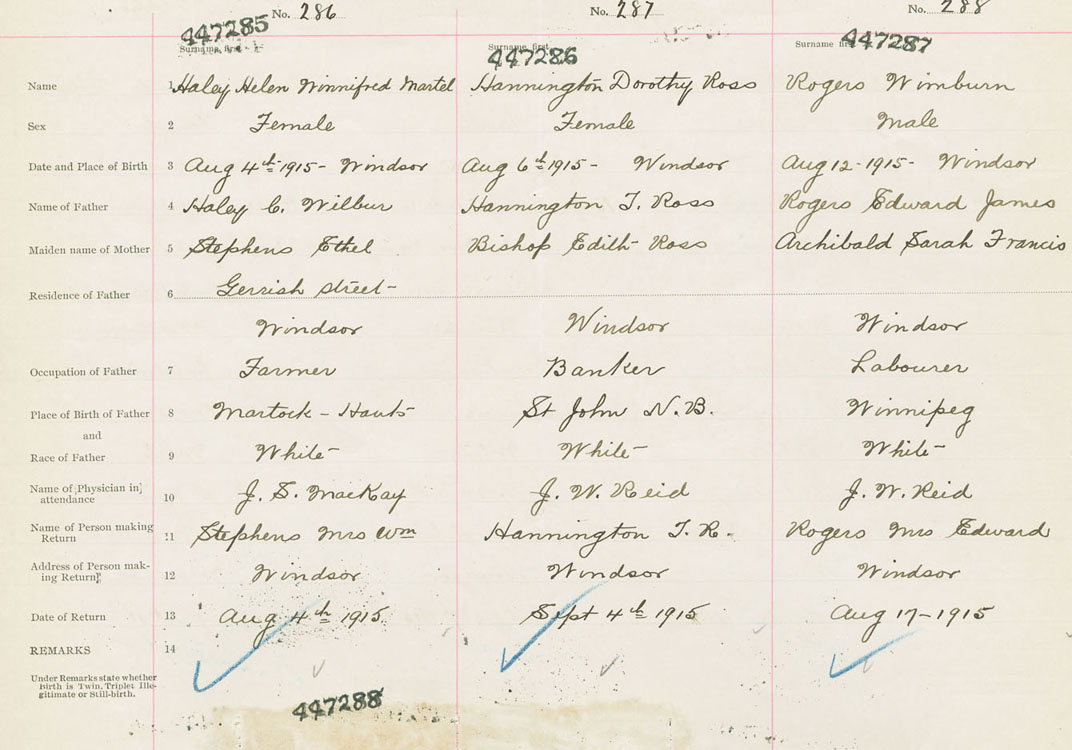 No. 286 No. 287 No. 288
447285 447286 447287
Surname first Surname first Surname
Name 1 Haley Helen Winnifred Martel Hannington Dorothy Ross Rogers Wimburn
Sex 2 Female Female Male
Date and Place of Birth 3 Aug 4th 1915 - Windsor Aug 6th 1915 - Windsor Aug 12 - 1915 - Windsor
Name of Father 4 Haley C. Wilbur Hannington T. Ross Rogers Edward James
Maiden name of Mother 5 Stephens Ethel Bishop Edith Ross Archibald Sarah Francis
Residence of Father 6 Gerrish street
Windsor Windsor Windsor
Occupation of Father 7 Farmer Banker Labourer
Place of Birth of Father 8 Martock - Hants St John N.B. Winnipeg
and
Race of Father 9 White White White
Name of [Physician in] 10 J. S. MacKay J. W. Reid J. W. Reid
attendance
Name of Person making 11 Stephens Mrs Wm Hannington T. R. Rogers Mrs Edward
Return
Address of Person mak- 12 Windsor Windsor Windsor
ing Return
Date of Return 13 Aug 4th 1915 Sept 4th 1915 Aug 17 - 1915
REMARKS 14
Under Remarks state whether
Birth is Twin, Triplet Ille-
gitimate or Still-birth.
447288